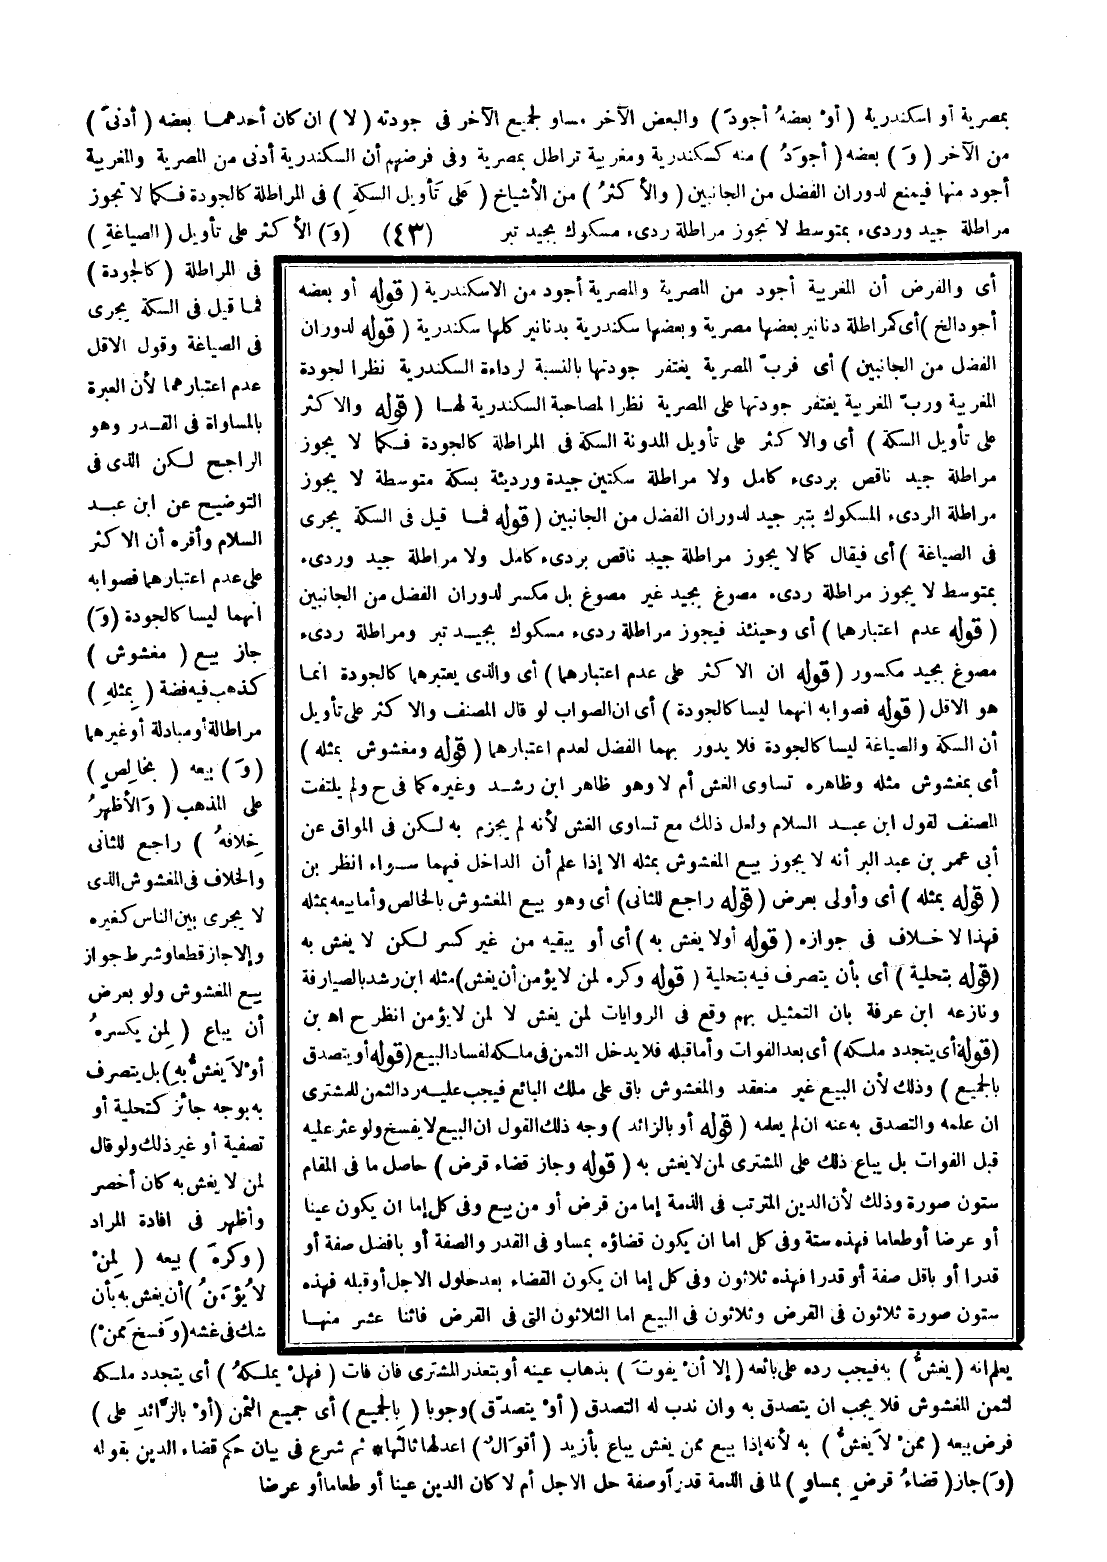 بمصرية أو اسكندرية ( أوْ بعضهُ أجودَ ) والبعض الآخر مساو لجميع الآخر فى جودته ( لا ) ان كان أحدهما بعضه ( أدنىَ )
من الآخر ( وَ ) بعضه ( أجوَدُ ) منه كسكندرية ومغربية تراطل بمصرية وفى فرضهم أن السكندرية أدنى من المصرية والمغربية
أجود منها فيمنع لدوران الفضل من الجانبين ( والأكثرُ ) من الأشياخ ( عَلى تَأويل السكةِ ) فى المراطلة كالجودة فكما لا تجوز
مراطلة جيد وردىء بمتوسط لا تجوز مراطلة ردىء مسكوك بجيد تبر (٤٣) (وَ) الأكثر على تأويل ( الصياغةِ )
فى المراطلة ( كالجودة )
فما قيل فى السكة يجرى
فى الصياغة وقول الاقل
عدم اعتبارهما لأن العبرة
بالمساواة فى القدر وهو
الراجح لكن الذى فى
التوضيح عن ابن عبد
السلام وأقره أن الاكثر
على عدم اعتبارهما فصوابه
انهما ليسا كالجودة (وَ)
جاز بيع ( مغشوش )
كذهب فيه فضة ( بمثلهِ )
مراطلة أو مبادلة أو غيرهما
(وَ) بيعه ( بخالِصٍ )
على المذهب ( وَالأظهرُ
خِلافهُ ) راجع للثانى
والخلاف فى المغشوش الذى
لا يجرى بين الناس كغيره
وإلا جاز قطعا وشرط جواز
بيع المغشوش ولو بعرض
أن يباع ( لِمن يكسرهُ
أوْ لاَ يَغشُّ بهِ ) بل يتصرف
به بوجه جائز كتحلية أو
تصفية أو غير ذلك ولو قال
لمن لا يغش به كان أخصر
وأظهر فى افادة المراد
( وكرهَ ) بيعه ( لِمنْ
لاَ يُؤمَنُ ) أن يغش به بأن
شك فى غشه ( وَفسخَ ممنْ )
أى والفرض أن المغربية أجود من المصرية والمصرية أجود من الاسكندرية ( قوله أو بعضه
أجود الخ ) أى كمراطلة دنانير بعضها مصرية وبعضها سكندرية بدنانير كلها سكندرية ( قوله لدوران
الفضل من الجانبين ) أى فربّ المصرية يغتفر جودتها بالنسبة لرداءة السكندرية نظرا لجودة
المغربية وربّ المغربية يغتفر جودتها على المصرية نظرا لمصاحبة السكندرية لها ( قوله والاكثر
على تأويل السكة ) أى والاكثر على تأويل المدونة السكة فى المراطلة كالجودة فكما لا يجوز
مراطلة جيد ناقص بردىء كامل ولا مراطلة سكتين جيدة ورديئة بسكة متوسطة لا يجوز
مراطلة الردىء المسكوك بتبر جيد لدوران الفضل من الجانبين ( قوله فما قيل فى السكة يجرى
فى الصياغة ) أى فيقال كما لا يجوز مراطلة جيد ناقص بردىء كامل ولا مراطلة جيد وردىء
بمتوسط لا يجوز مراطلة ردىء مصوغ بجيد غير مصوغ بل مكسر لدوران الفضل من الجانبين
( قوله عدم اعتبارهما ) أى وحينئذ فيجوز مراطلة ردىء مسكوك بجيد تبر ومراطلة ردىء
مصوغ بجيد مكسور ( قوله ان الاكثر على عدم اعتبارهما ) أى والذى يعتبرهما كالجودة انما
هو الاقل ( قوله فصوابه انهما ليسا كالجودة ) أى ان الصواب لو قال المصنف والاكثر على تأويل
أن السكة والصياغة ليسا كالجودة فلا يدور بهما الفضل لعدم اعتبارهما ( قوله ومغشوش بمثله )
أى بمغشوش مثله وظاهره تساوى الغش أم لا وهو ظاهر ابن رشد وغيره كما فى ح ولم يلتفت
المصنف لقول ابن عبد السلام ولعل ذلك مع تساوى الغش لأنه لم يجزم به لكن فى المواق عن
أبى عمر بن عبد البر أنه لا يجوز بيع المغشوش بمثله الا إذا علم أن الداخل فيهما سواء انظر بن
( قوله بمثله ) أى وأولى بعرض ( قوله راجع للثانى ) أى وهو بيع المغشوش بالخالص وأما بيعه بمثله
فهذا لا خلاف فى جوازه ( قوله أو لا يغش به ) أى أو يبقيه من غير كسر لكن لا يغش به
( قوله بتحلية ) أى بأن يتصرف فيه بتحلية ( قوله وكره لمن لا يؤمن أن يغش ) مثله ابن رشد بالصيارفة
ونازعه ابن عرفة بان التمثيل بهم وقع فى الروايات لمن يغش لا لمن لا يؤمن انظر ح اه بن
( قوله أى يتجدد ملكه ) أى بعد الفوات وأما قبله فلا يدخل الثمن فى ملكه لفساد البيع ( قوله أو يتصدق
بالجميع ) وذلك لأن البيع غير منعقد والمغشوش باق على ملك البائع فيجب عليه رد الثمن للمشترى
ان علمه والتصدق به عنه ان لم يعلمه ( قوله أو بالزائد ) وجه ذلك القول ان البيع لا يفسخ ولو عثر عليه
قبل الفوات بل يباع ذلك على المشترى لمن لا يغش به ( قوله وجاز قضاء قرض ) حاصل ما فى المقام
ستون صورة وذلك لأن الدين المترتب فى الذمة إما من قرض أو من بيع وفى كل إما ان يكون عينا
أو عرضا أو طعاما فهذه ستة وفى كل اما ان يكون قضاؤه بمساو فى القدر والصفة أو بافضل صفة أو
قدرا أو باقل صفة أو قدرا فهذه ثلاثون وفى كل إما ان يكون القضاء بعد حلول الاجل أو قبله فهذه
ستون صورة ثلاثون فى القرض وثلاثون فى البيع اما الثلاثون التى فى القرض فاثنا عشر منها
يعلم انه ( يغشُّ ) به فيجب رده على بائعه ( إلا أنْ يفوتَ ) بذهاب عينه أو بتعذر المشترى فان فات ( فهلْ يملكهُ ) أى يتجدد ملكه
لثمن المغشوش فلا يجب ان يتصدق به وان ندب له التصدق ( أوْ يتصدّق ) وجوبا ( بِالجميع ) أى جميع الثمن ( أوْ بالزَّائدِ على )
فرض بيعه ( ممنْ لاَ يَغشُّ ) به لأنه إذا بيع ممن يغش يباع بأزيد ( أقوَالٌ ) اعدلها ثالثها* ثم شرع فى بيان حكم قضاء الدين بقوله
(وَ) جاز ( قضاءُ قرضٍ بمساوٍ ) لما فى الذمة قدرا وصفة حل الاجل أم لا كان الدين عينا أو طعاما أو عرضا